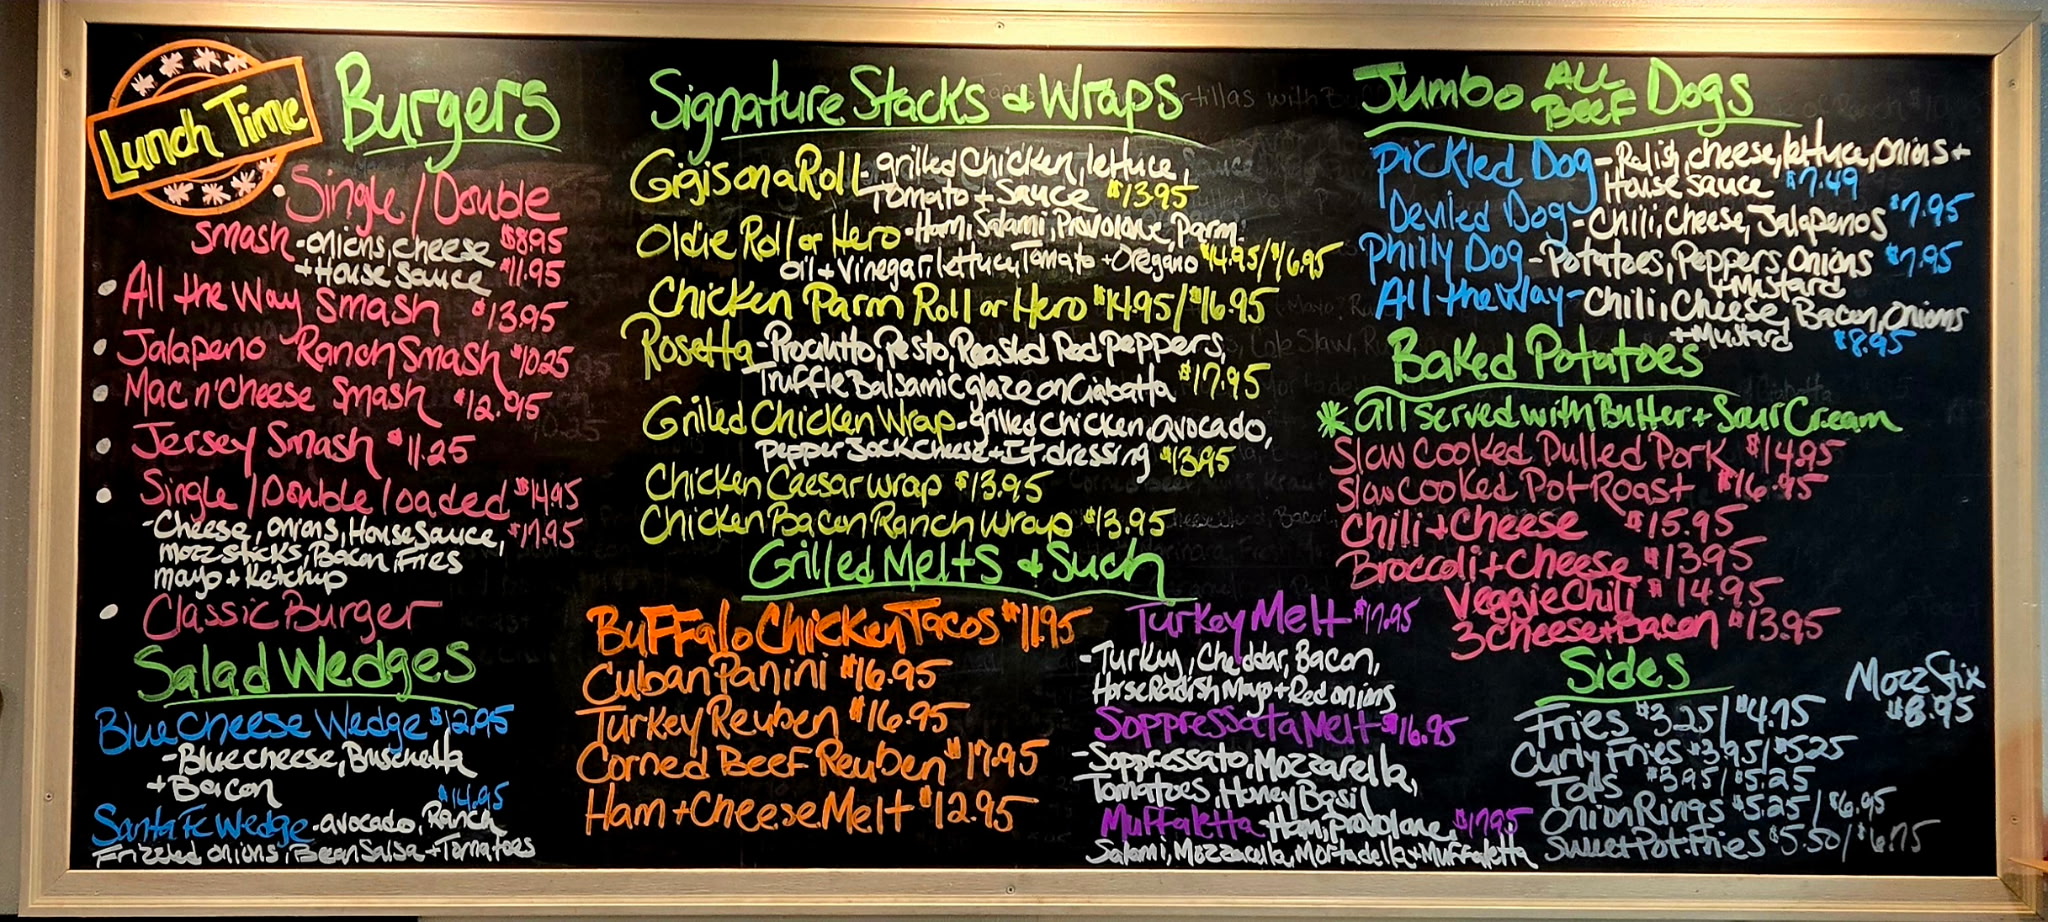 Lunch Time
Burgers
Single/Double
Smash - onions, cheese $8.95
+ House Sauce $11.95
All the Way Smash $13.95
Jalapeno Ranch Smash $10.25
Mac n' Cheese Smash $12.95
Jersey Smash $11.25
Single/Double loaded $14.95
- Cheese, onions, House Sauce, $17.95
Mozz Sticks, Bacon, Fries
Mayo + Ketchup
Classic Burger
Salad Wedges
Blue Cheese Wedge $12.95
- Bluecheese, Bruschetta
+ Bacon
$14.95
Santa Fe Wedge - avocado, Ranch
Frizzled onions, Bean Salsa + Tomatoes
Signature Stacks & Wraps
Gigi's on a Roll - grilled Chicken, lettuce,
Tomato + Sauce $13.95
Oldie Roll or Hero - Ham, Salami, Provolone, Parm,
Oil + Vinegar, lettuce, Tomato + Oregano $14.95/$16.95
Chicken Parm Roll or Hero $14.95/$16.95
Rosetta - Prociutto, Pesto, Roasted Red Peppers,
Truffle Balsamic glaze on Ciabatta $17.95
Grilled Chicken Wrap - grilled chicken, avocado,
Pepper Jack Cheese + It. dressing $13.95
Chicken Caesar Wrap $13.95
Chicken Bacon Ranch Wrap $13.95
Grilled Melts & Such
Buffalo Chicken Tacos $11.95
Cuban Panini $16.95
Turkey Reuben $16.95
Corned Beef Reuben $17.95
Ham + Cheese Melt $12.95
Turkey Melt $17.95
- Turkey, Cheddar, Bacon,
Horse Radish Mayo + Red onions
Soppressata Melt $16.95
- Soppressato, Mozzarella,
Tomatoes, Honey Basil
Muffaletta - Ham, Provolone, $17.95
Salami, Mozzarella, Mortadella + Muffaletta
Jumbo ALL BEEF Dogs
Pickled Dog - Relish, cheese, lettuce, onions +
House Sauce $7.49
Deviled Dog - Chili, Cheese, Jalapenos $7.95
Philly Dog - Potatoes, Peppers, Onions $7.95
+ Mustard
All the Way - Chili, Cheese, Bacon, Onions
+ Mustard $8.95
Baked Potatoes
* All Served with Butter + Sour Cream
Slow Cooked Pulled Pork $14.95
Slow Cooked Pot Roast $16.95
Chili + Cheese $15.95
Broccoli + Cheese $13.95
Veggie Chili $14.95
3 Cheese + Bacon $13.95
Sides
Mozz Stix
$8.95
Fries $3.25/$4.75
Curly Fries $3.95/$5.25
Tots $3.95/$5.25
Onion Rings $5.25/$6.95
Sweet Pot Fries $5.50/$6.75